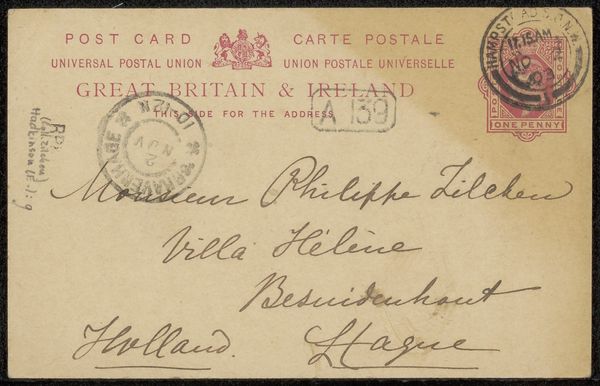 POST CARD CARTE POSTALE
UNIVERSAL POSTAL UNION UNION POSTALE UNIVERSELLE
GREAT BRITAIN & IRELAND
THIS SIDE FOR THE ADDRESS
HAMPSTEAD S.O.N.W.
11.15AM
NO
03
ONE PENNY
A 139
'SGRAVENHAGE
10-12N
2
NOV
RPJ
Hodenson (E.): 9
Monsieur Philippe Zilcken
Villa Hélène
Besuidenhout
Holland. Hague